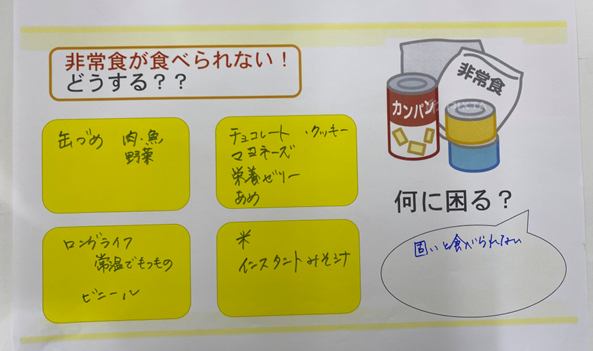 非常食が食べられない！
どうする？？
缶づめ 肉・魚
野菜
チョコレート ・クッキー
マヨネーズ
栄養ゼリー
あめ
ロングライフ
常温でもつもの
ビニール
米
インスタントみそ汁
非常食
カンパン
何に困る？
固いと食べられない